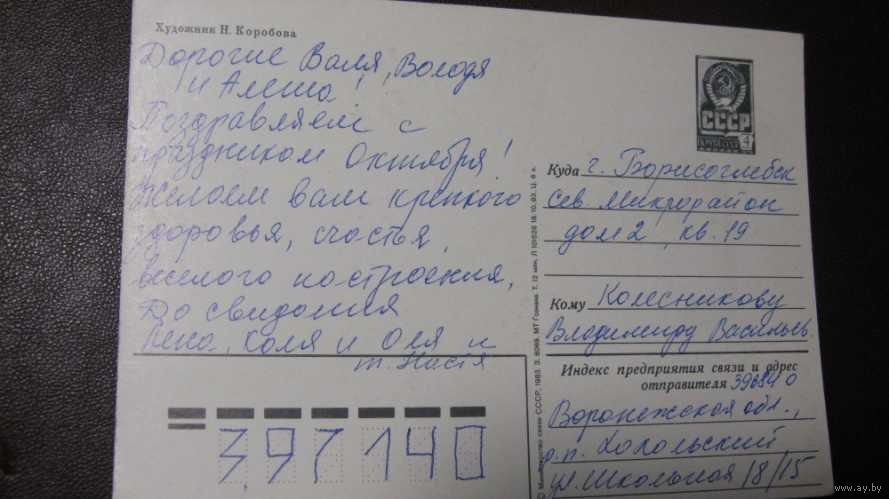 Художник Н. Коробова
Дорогие Валя, Володя
и Алеша!
Поздравляем с
праздником Октября!
Желаем вам крепкого
здоровья, счастья,
веселого настроения,
До свидания
Лена, Коля и Оля и
т. Настя
СССР
Куда г. Борисоглебск
Сев. Микрорайон
дом 2, кв. 19
Кому Колесникову
Владимиру Васильев.
Индекс предприятия связи и адрес
отправителя 396840
Воронежская обл.,
р.п. Хохольский
ул. Школьная 18/15
397140
© Министерство связи СССР, 1983. З. 8069. МТ Гознака. Т. 12 млн.
www.ay.by